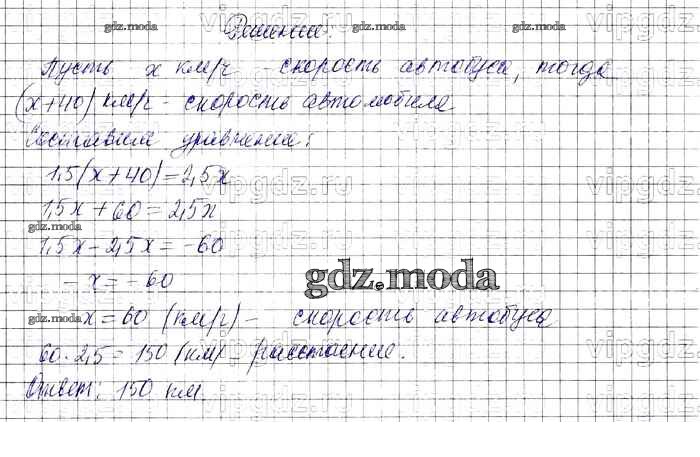 Решение.
Пусть x км/ч - скорость автобуса, тогда
(x+40) км/ч - скорость автомобиля
Составим уравнение:
1,5(x+40)=2,5x
1,5x+60=2,5x
1,5x-2,5x=-60
-x=-60
x=60 (км/ч) - скорость автобуса
60·2,5=150 (км) - расстояние.
Ответ: 150 км
gdz.moda
gdz.moda
gdz.moda
gdz.moda
gdz.moda
gdz.moda
gdz.moda
vipgdz.ru
vipgdz.ru
vipgdz.ru
vipgdz.ru